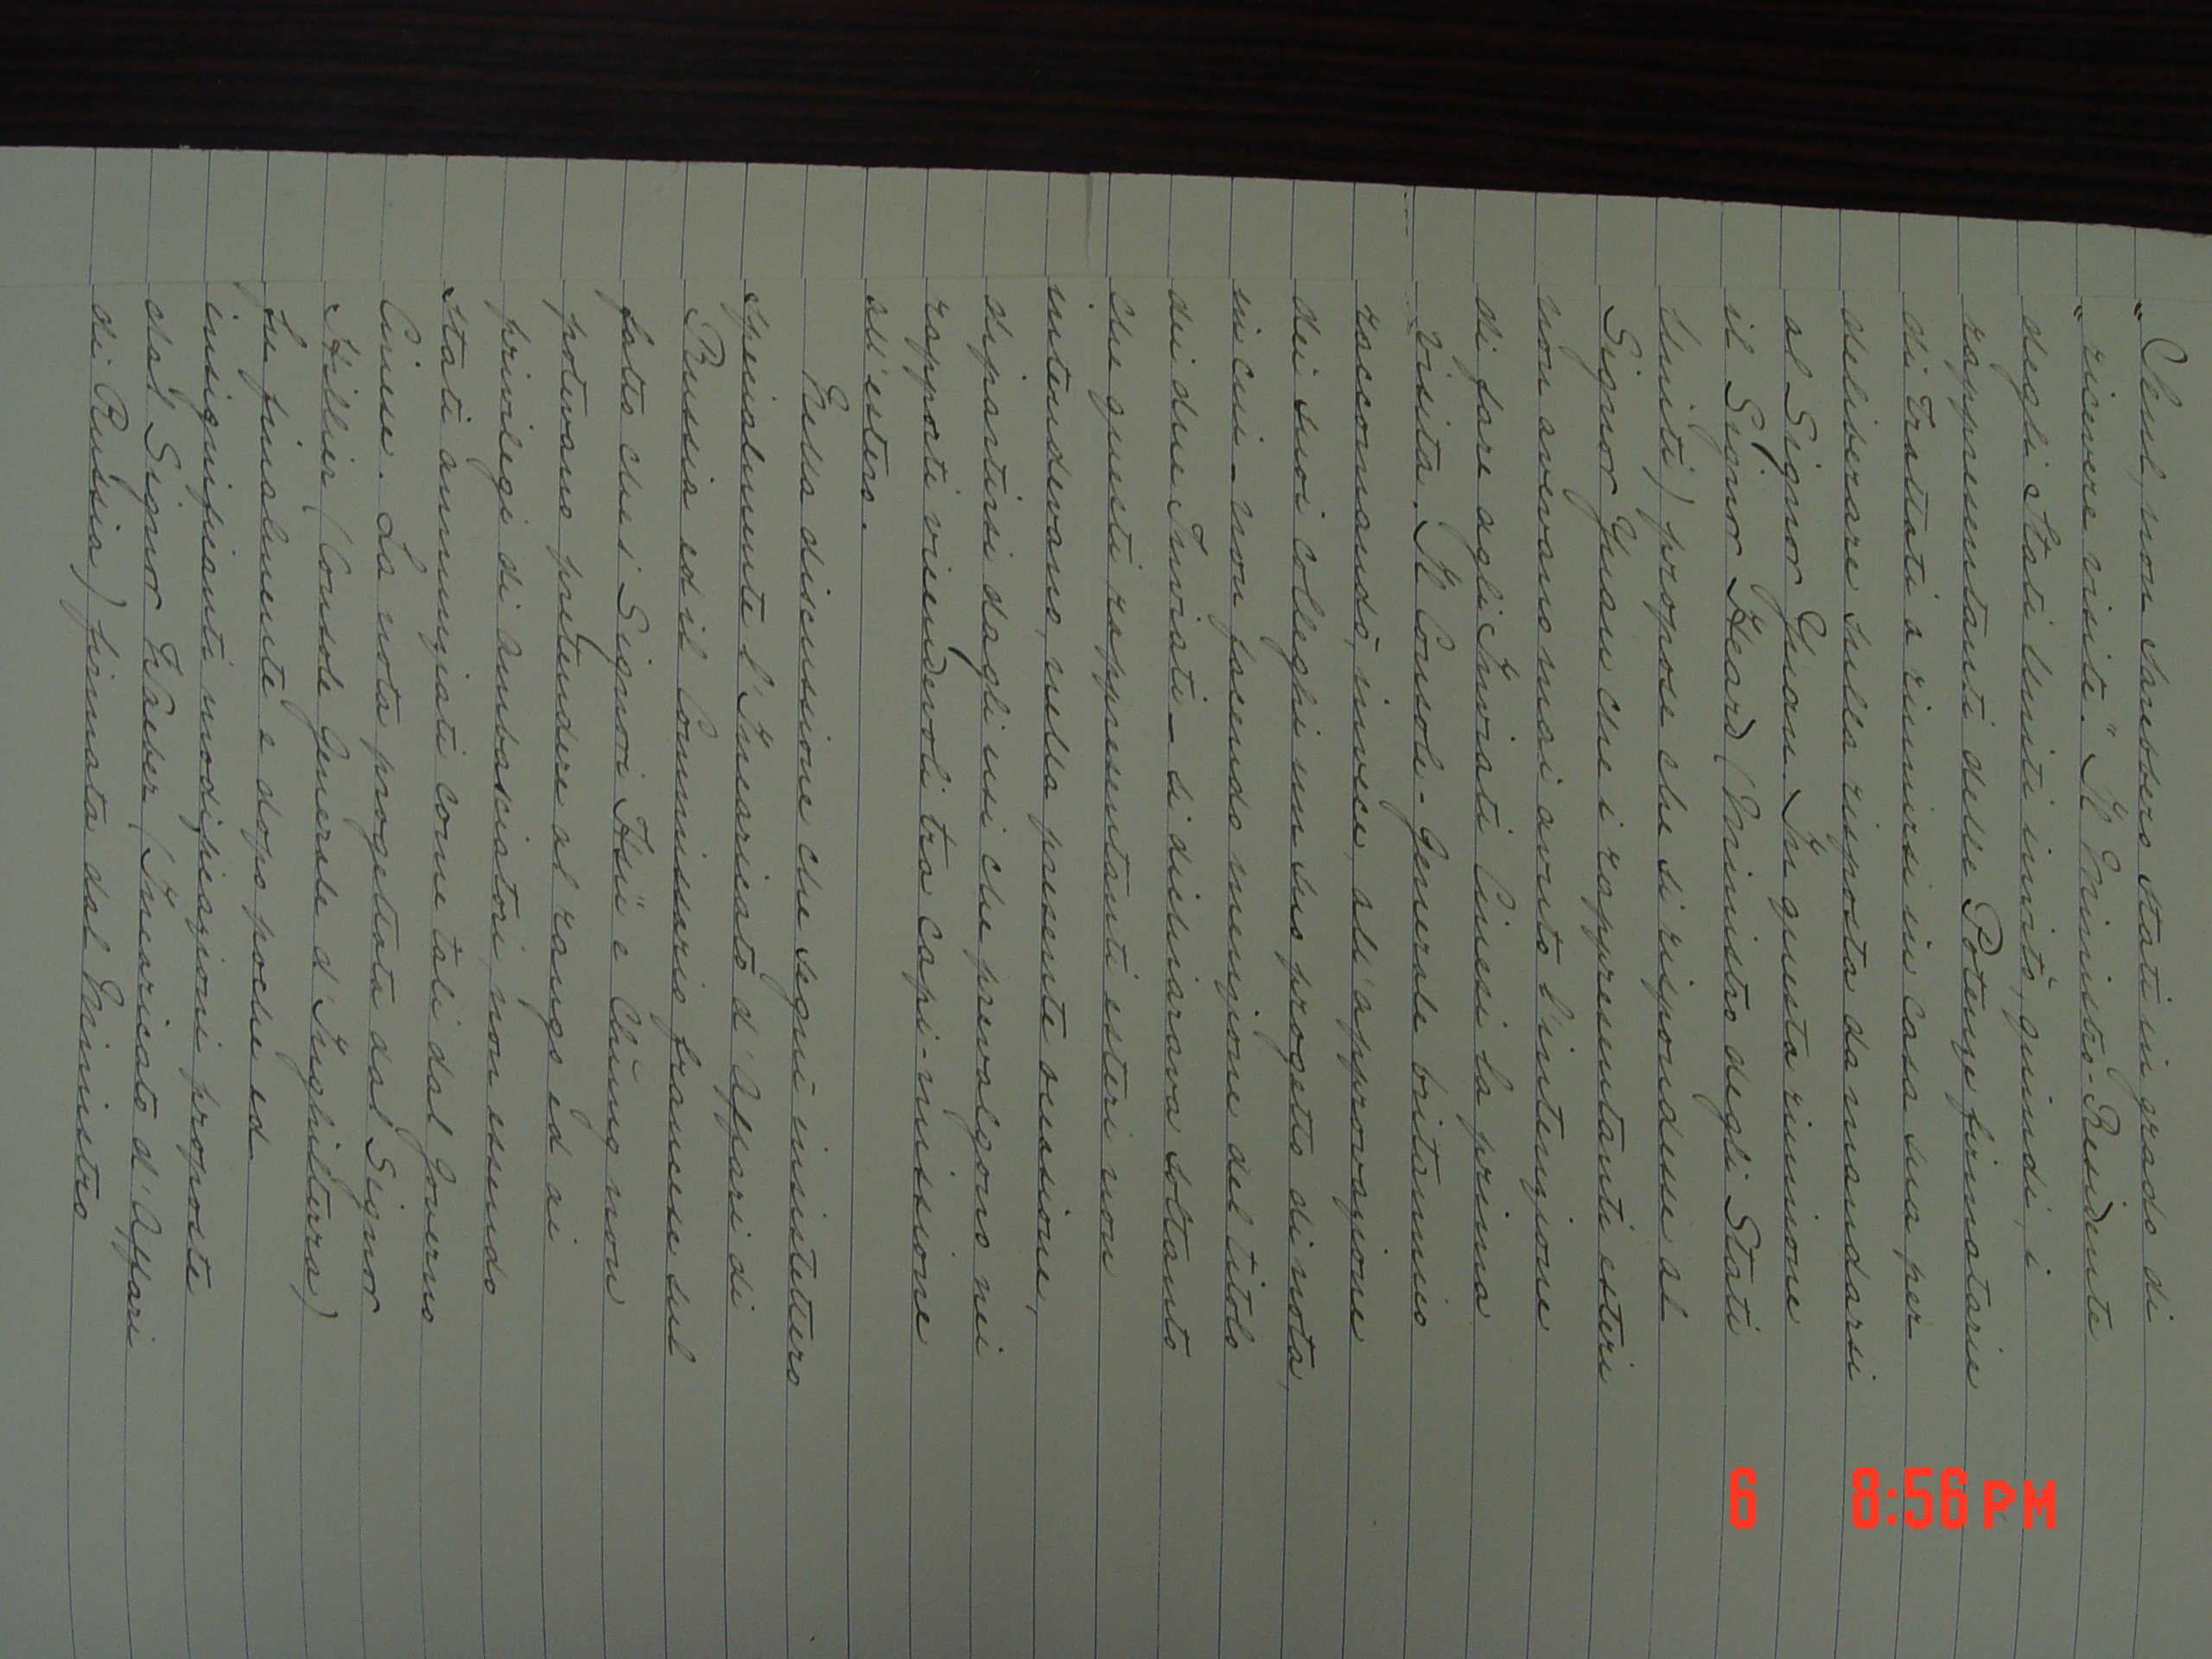 „ Seul, non sarebbero stati in grado di
„ ricevere visite." Il Ministro-Residente
degli Stati Uniti invitò, quindi, i
rappresentanti delle Potenze firmatarie
di Trattati a riunirsi in casa sua per
deliberare sulla risposta da mandarsi
al Signor Yuan. In questa riunione
il Signor Heard (Ministro degli Stati
Uniti) propose che si rispondesse al
Signor Yuan che i rappresentanti esteri
non avevano mai avuto l'intenzione
di fare agli Inviati Cinesi la prima
visita. Il Console-Generale britannico
raccomandò, invece, all'approvazione
dei suoi colleghi un suo progetto di nota,
in cui - non facendo menzione del titolo
dei due Inviati - si dichiarava soltanto
che questi rappresentanti esteri non
intendevano, nella presente occasione,
dipartirsi dagli usi che prevalgono nei
rapporti vicendevoli tra capi-missione
all'estero.
Nella discussione che seguì insistettero
specialmente l'Incaricato d'Affari di
Russia ed il Commissario francese sul
fatto che i Signori Hsü e Ch'ung non
potevano pretendere al rango ed ai
privilegi di ambasciatori, non essendo
stati annunziati come tali dal Governo
Cinese. La nota progettata dal Signor
Hillier (Console Generale d'Inghilterra)
fu finalmente e dopo poche ed
insignificanti modificazioni proposte
dal Signor Waeber (Incaricato d'Affari
di Russia) firmata dal Ministro
6 8:56 PM